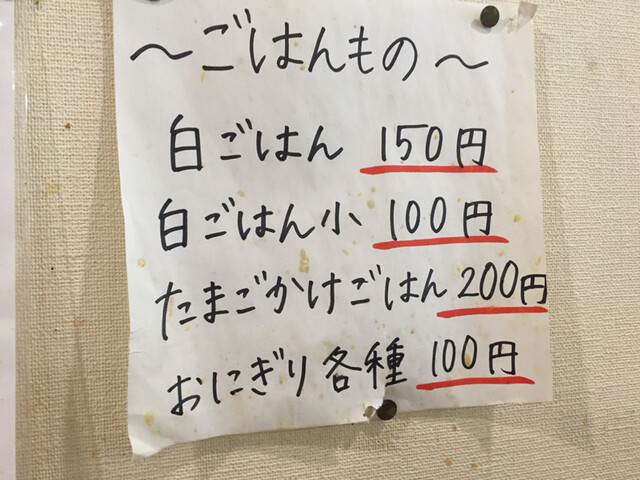 〜ごはんもの〜
白ごはん 150円
白ごはん小 100円
たまごかけごはん 200円
おにぎり各種 100円